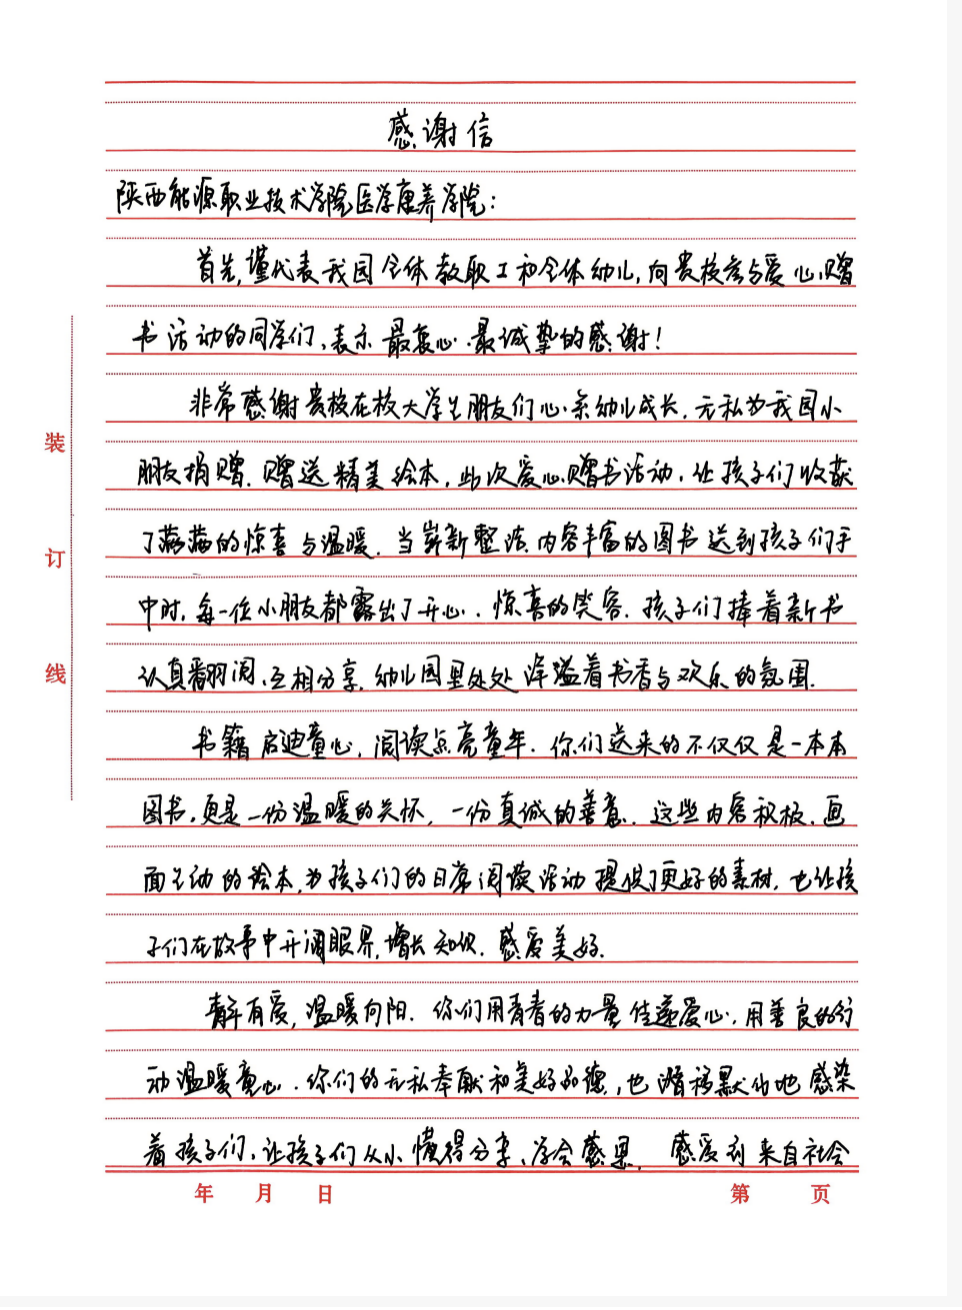 感谢信
陕西能源职业技术学院医学康养学院：
首先，谨代表我园全体教职工和全体幼儿，向贵校参与爱心赠
书活动的同学们、表示最衷心、最诚挚的感谢！
非常感谢贵校在校大学生朋友们心系幼儿成长，无私为我园小
朋友捐赠、赠送精美绘本，此次爱心赠书活动，让孩子们收获
了满满的惊喜与温暖。当崭新整洁、内容丰富的图书送到孩子们手
中时，每一位小朋友都露出了开心、惊喜的笑容。孩子们捧着新书
认真翻阅、互相分享，幼儿园里处处洋溢着书香与欢乐的氛围。
书籍启迪童心，阅读点亮童年。你们送来的不仅仅是一本本
图书，更是一份温暖的关怀，一份真诚的善意。这些内容积极、画
面生动的绘本，为孩子们的日常阅读活动提供了更好的素材，也让孩
子们在故事中开阔眼界，增长知识，感受美好。
青年有爱，温暖向阳。你们用青春的力量传递爱心，用善良的行
动温暖童心。你们的无私奉献和美好品德，也潜移默化地感染
着孩子们，让孩子们从小懂得分享、学会感恩，感受到来自社会
装
订
线
年 月 日 第 页